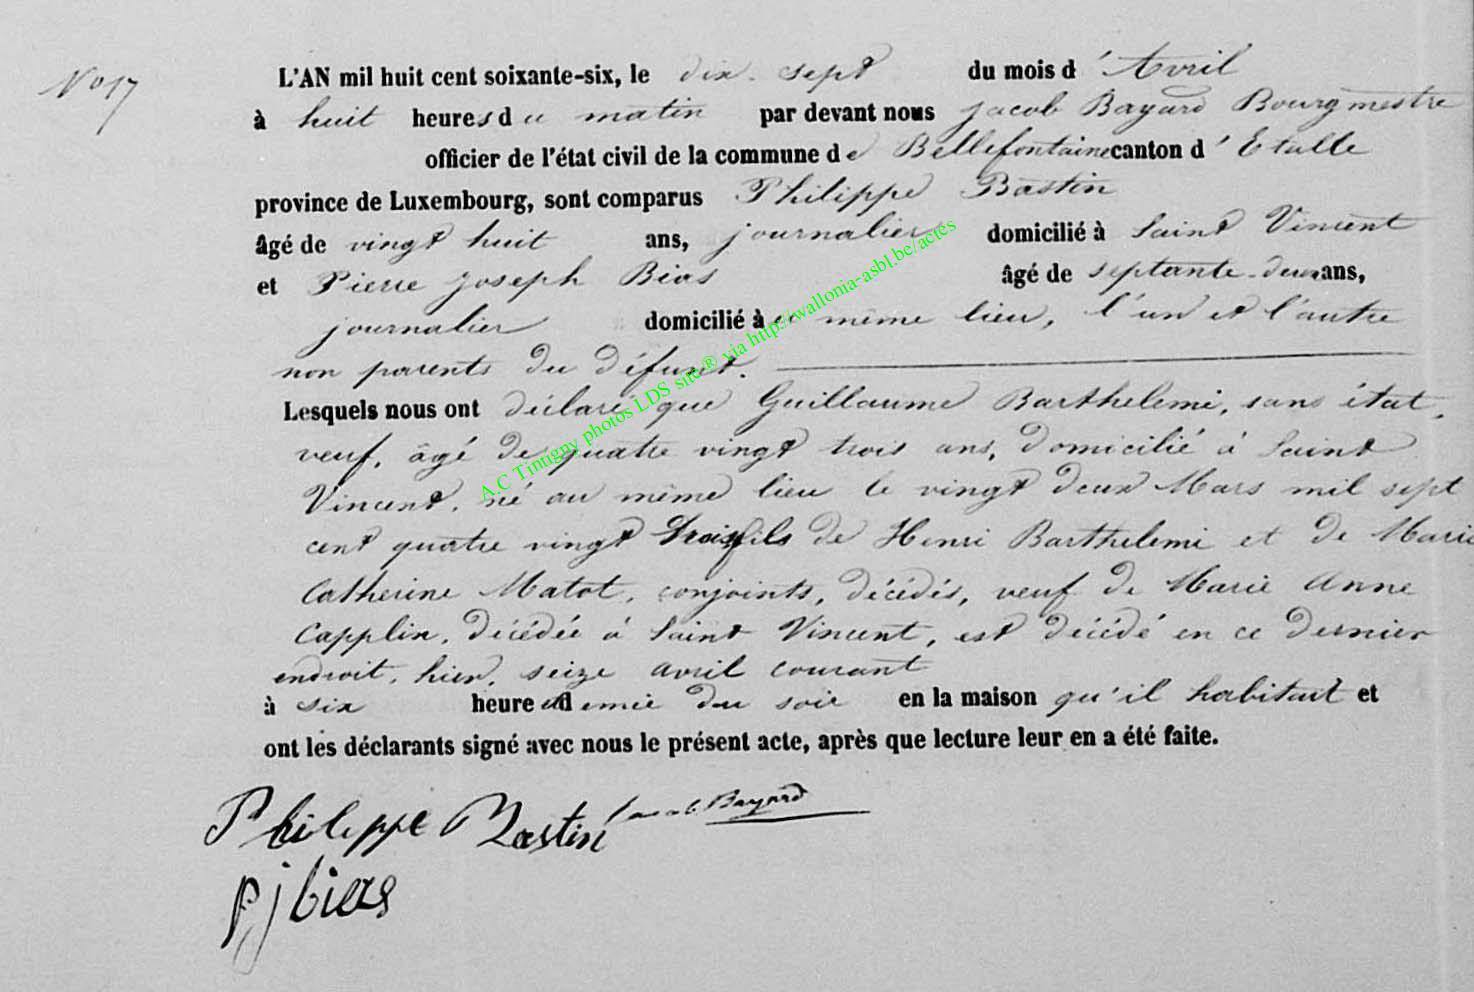 No 17
L'AN mil huit cent soixante-six, le dix-sept du mois d'Avril
à huit heures du matin par devant nous Jacob Bayard Bourgmestre
officier de l'état civil de la commune de Bellefontaine canton d'Etalle
province de Luxembourg, sont comparus Philippe Bastin
âgé de vingt huit ans, journalier domicilié à Saint Vincent
et Pierre Joseph Bias âgé de septante-deux ans,
journalier domicilié au même lieu, l'un et l'autre
non parents du défunt.
Lesquels nous ont déclaré que Guillaume Barthelemi, sans état,
veuf, âgé de quatre vingt trois ans, domicilié à Saint
Vincent, né au même lieu le vingt deux Mars mil sept
cent quatre vingt trois fils de Henri Barthelemi et de Marie
Catherine Matot, conjoints, décédés, veuf de Marie Anne
Capplin, décédée à Saint Vincent, est décédé en ce dernier
endroit, hier, seize avril courant
à six heure demie du soir en la maison qu'il habitait et
ont les déclarants signé avec nous le présent acte, après que lecture leur en a été faite.
Philippe Bastin Jacob Bayard
P j bias
A.C Tintigny photos LDS site ® via http://wallonia-asbl.be/actes